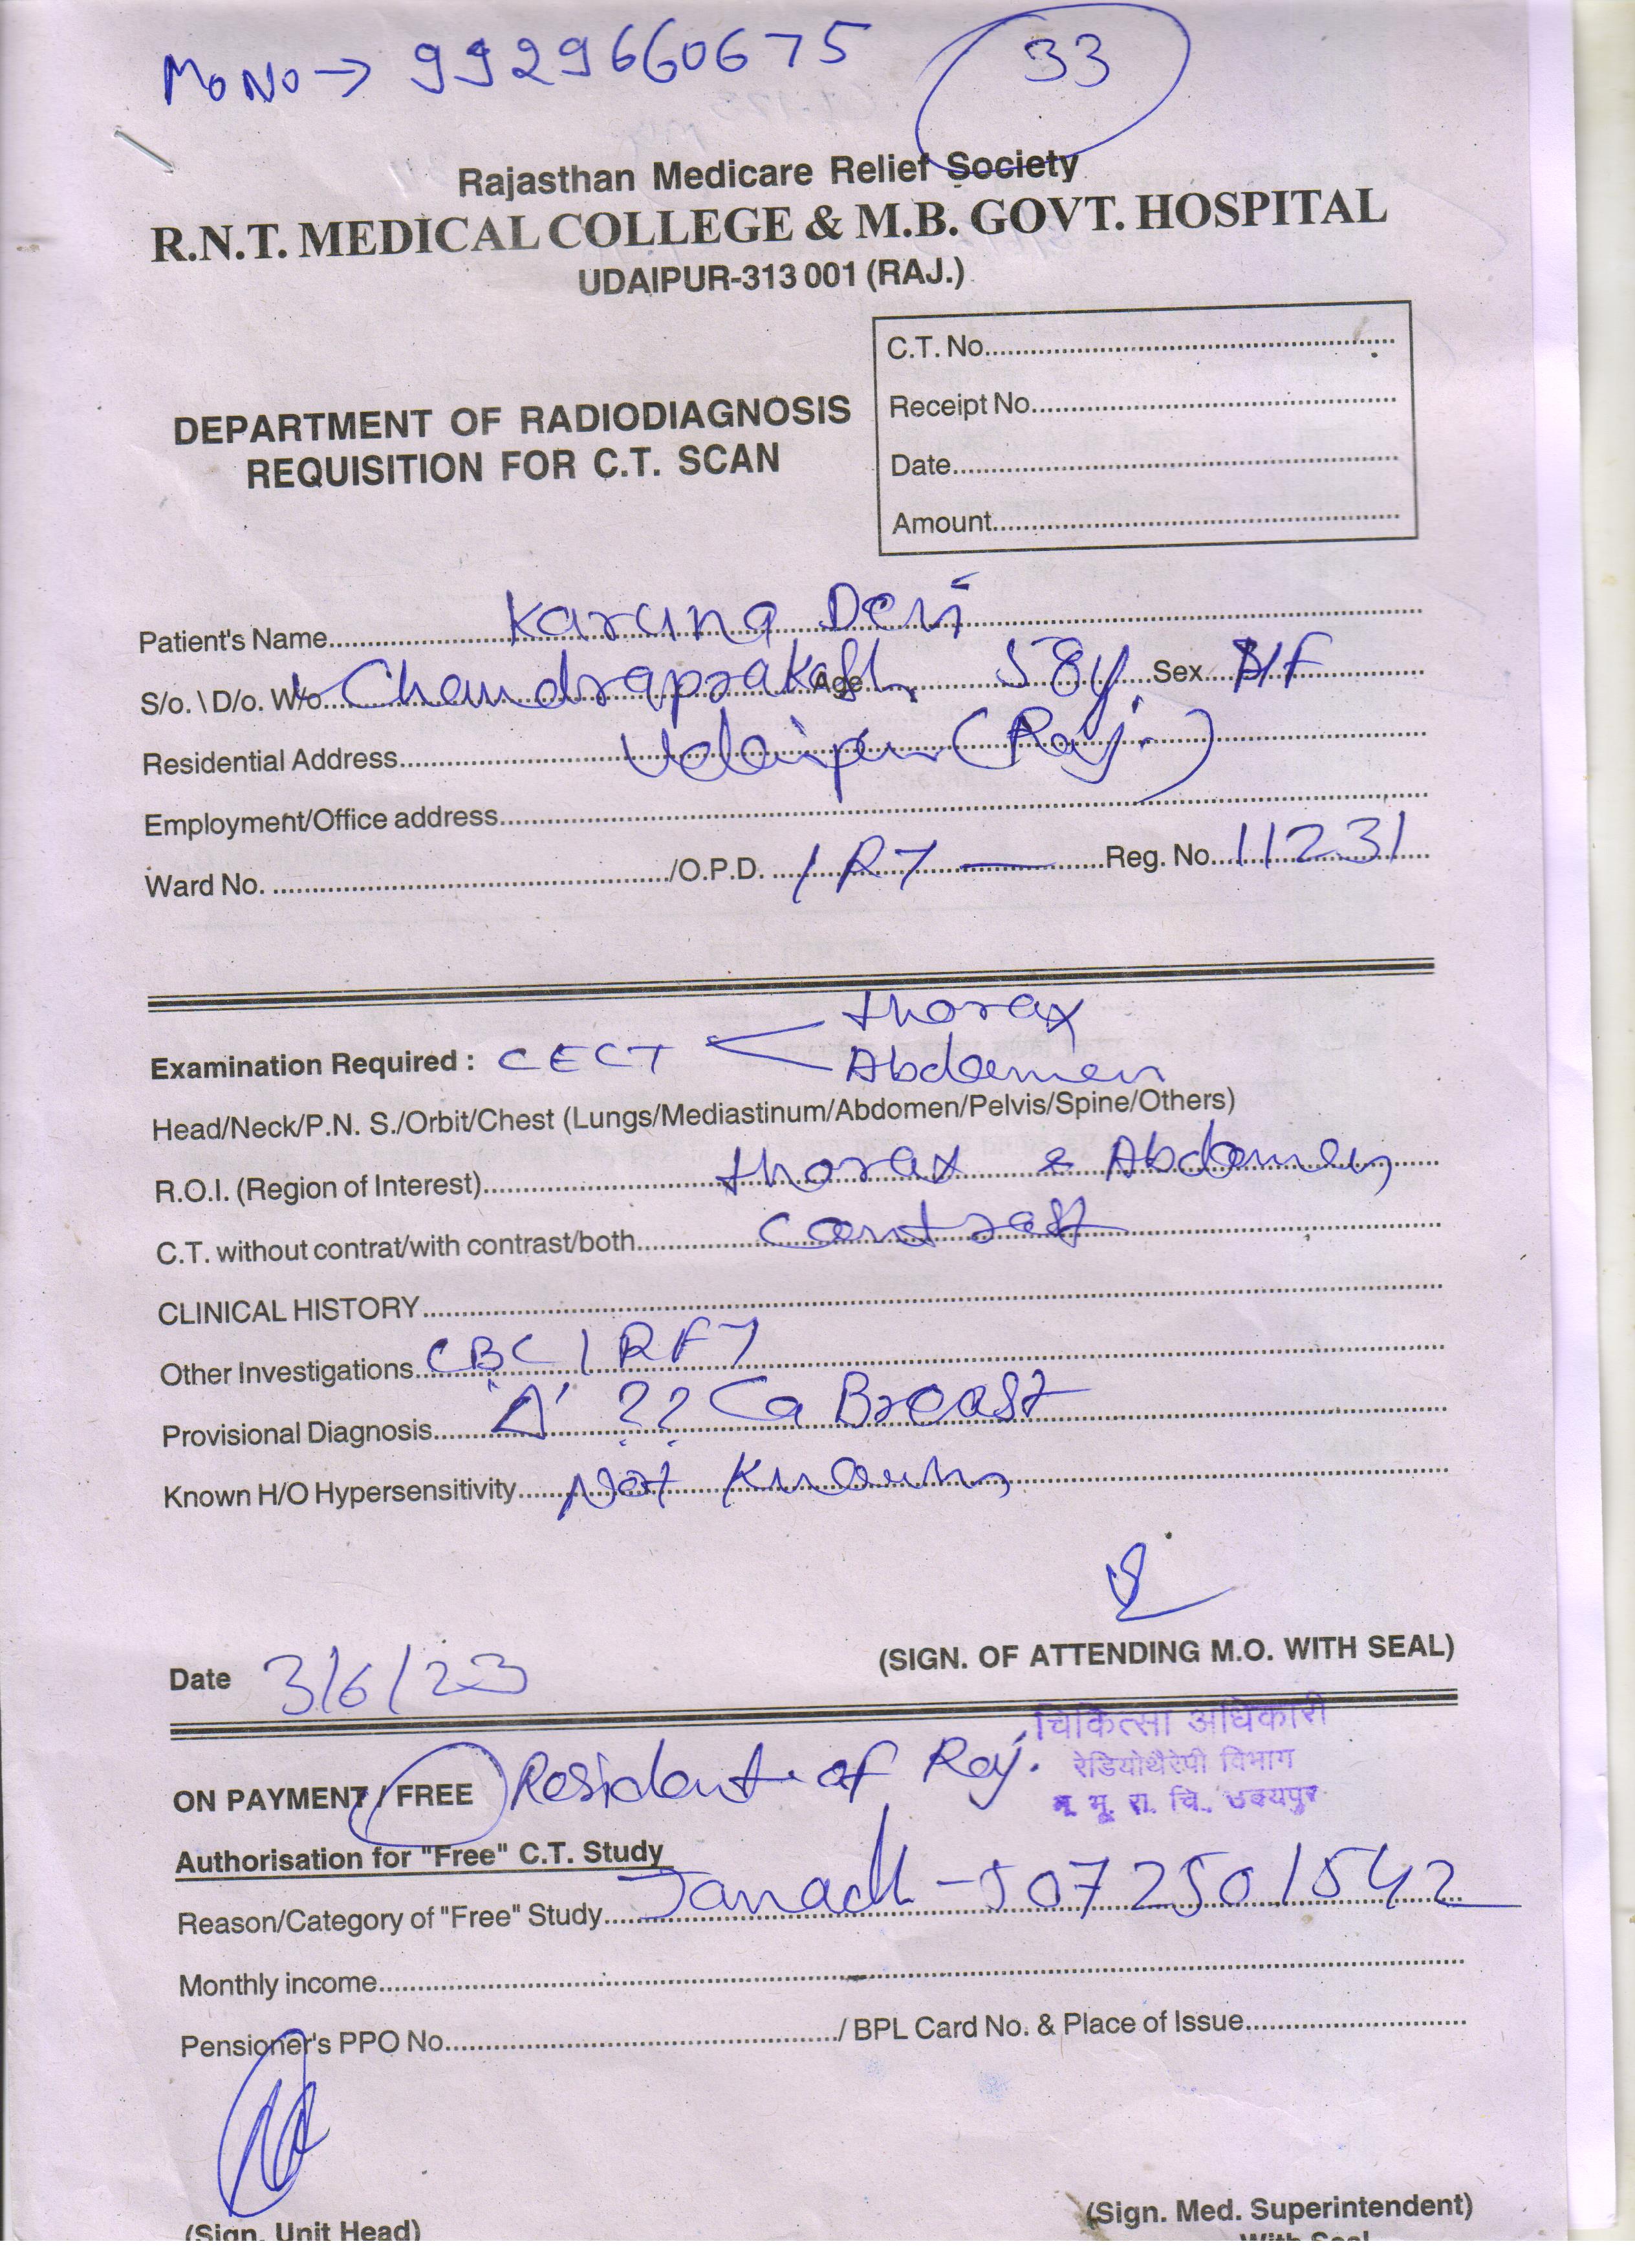 MoNo→ 9929660675 33
Rajasthan Medicare Relief Society
R.N.T. MEDICAL COLLEGE & M.B. GOVT. HOSPITAL
UDAIPUR-313 001 (RAJ.)
C.T. No.
Receipt No.
Date
Amount
DEPARTMENT OF RADIODIAGNOSIS
REQUISITION FOR C.T. SCAN
Patient's Name Karuna Devi
S/o. \ D/o. W/o Chandraprakash Age 58y Sex F
Residential Address Udaipur (Raj.)
Employment/Office address
Ward No. /O.P.D. / RT — Reg. No. 11231
Examination Required : CECT < Thorax
Abdomen
Head/Neck/P.N. S./Orbit/Chest (Lungs/Mediastinum/Abdomen/Pelvis/Spine/Others)
R.O.I. (Region of Interest) Thorax & Abdomen
C.T. without contrat/with contrast/both Contrast
CLINICAL HISTORY
Other Investigations CBC / RFT
Provisional Diagnosis 'Δ' ?? Ca Breast
Known H/O Hypersensitivity Not Known
(SIGN. OF ATTENDING M.O. WITH SEAL)
Date 3/6/23
चिकित्सा अधिकारी
रेडियोथैरेपी विभाग
म. भू. रा. चि., उदयपुर
ON PAYMENT / FREE Resident of Raj.
Authorisation for "Free" C.T. Study
Reason/Category of "Free" Study Janadh - 5072501542
Monthly income
Pensioner's PPO No. / BPL Card No. & Place of Issue
(Sign. Unit Head) (Sign. Med. Superintendent)
With Seal